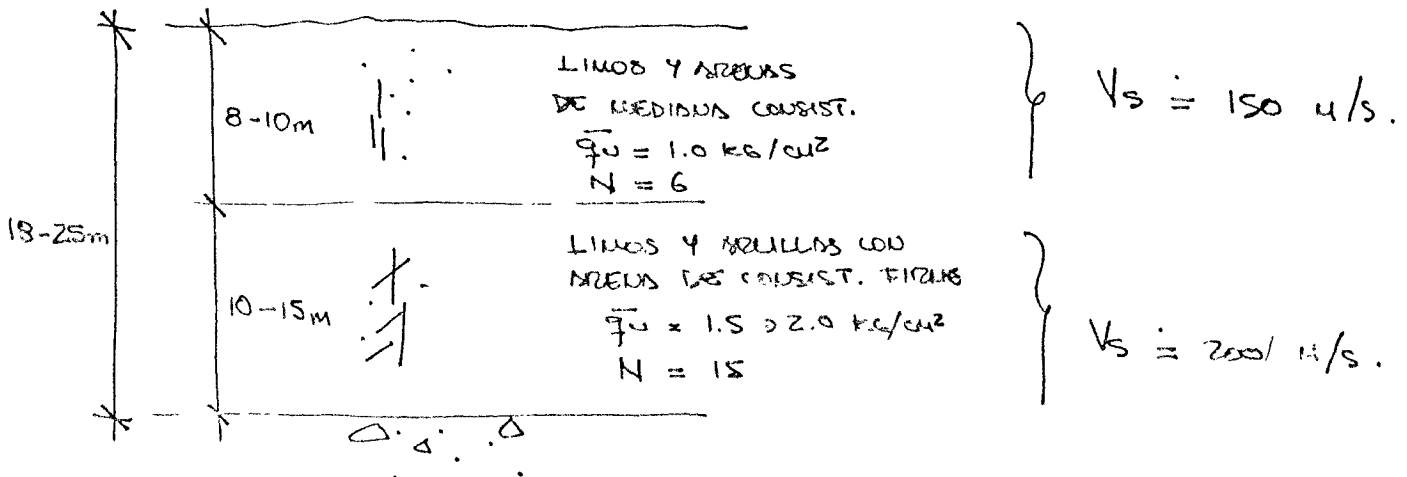 LIMOS Y ARENAS
DE MEDIANA CONSIST.
8-10m
qu = 1.0 kg/cm²
N = 6
Vs ≐ 150 m/s.
18-25m
LIMOS Y ARCILLAS CON
ARENA DE CONSIST. FIRME
10-15m
qu = 1.5 a 2.0 kg/cm²
N = 15
Vs ≐ 200 m/s.